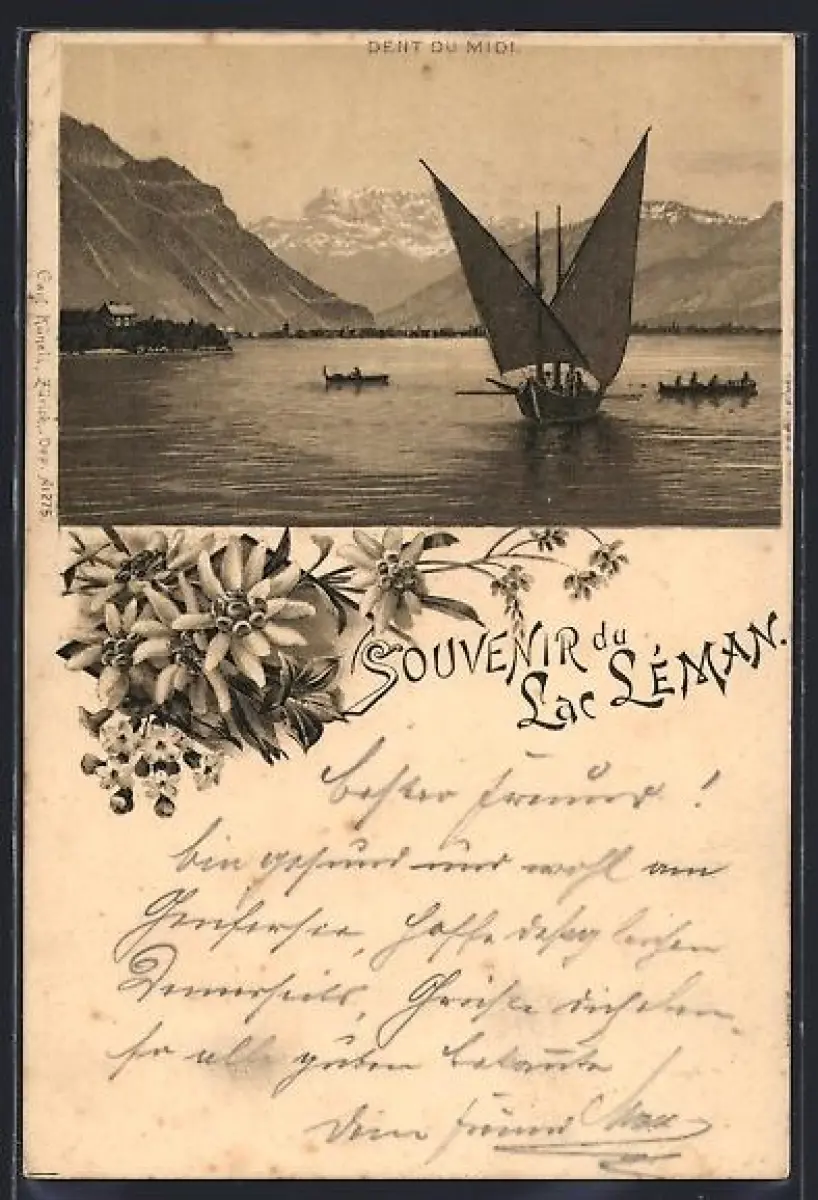 DENT DU MIDI.
Carl Künzli, Zürich, Dep. №1275.
SOUVENIR du
Lac LÉMAN.
bester Freund!
bin gesund und wohl am
Genfersee, hoffe desgleichen
Deinerseits, Grüße dich eben-
so alle guten bekannte
Dein Freund Max